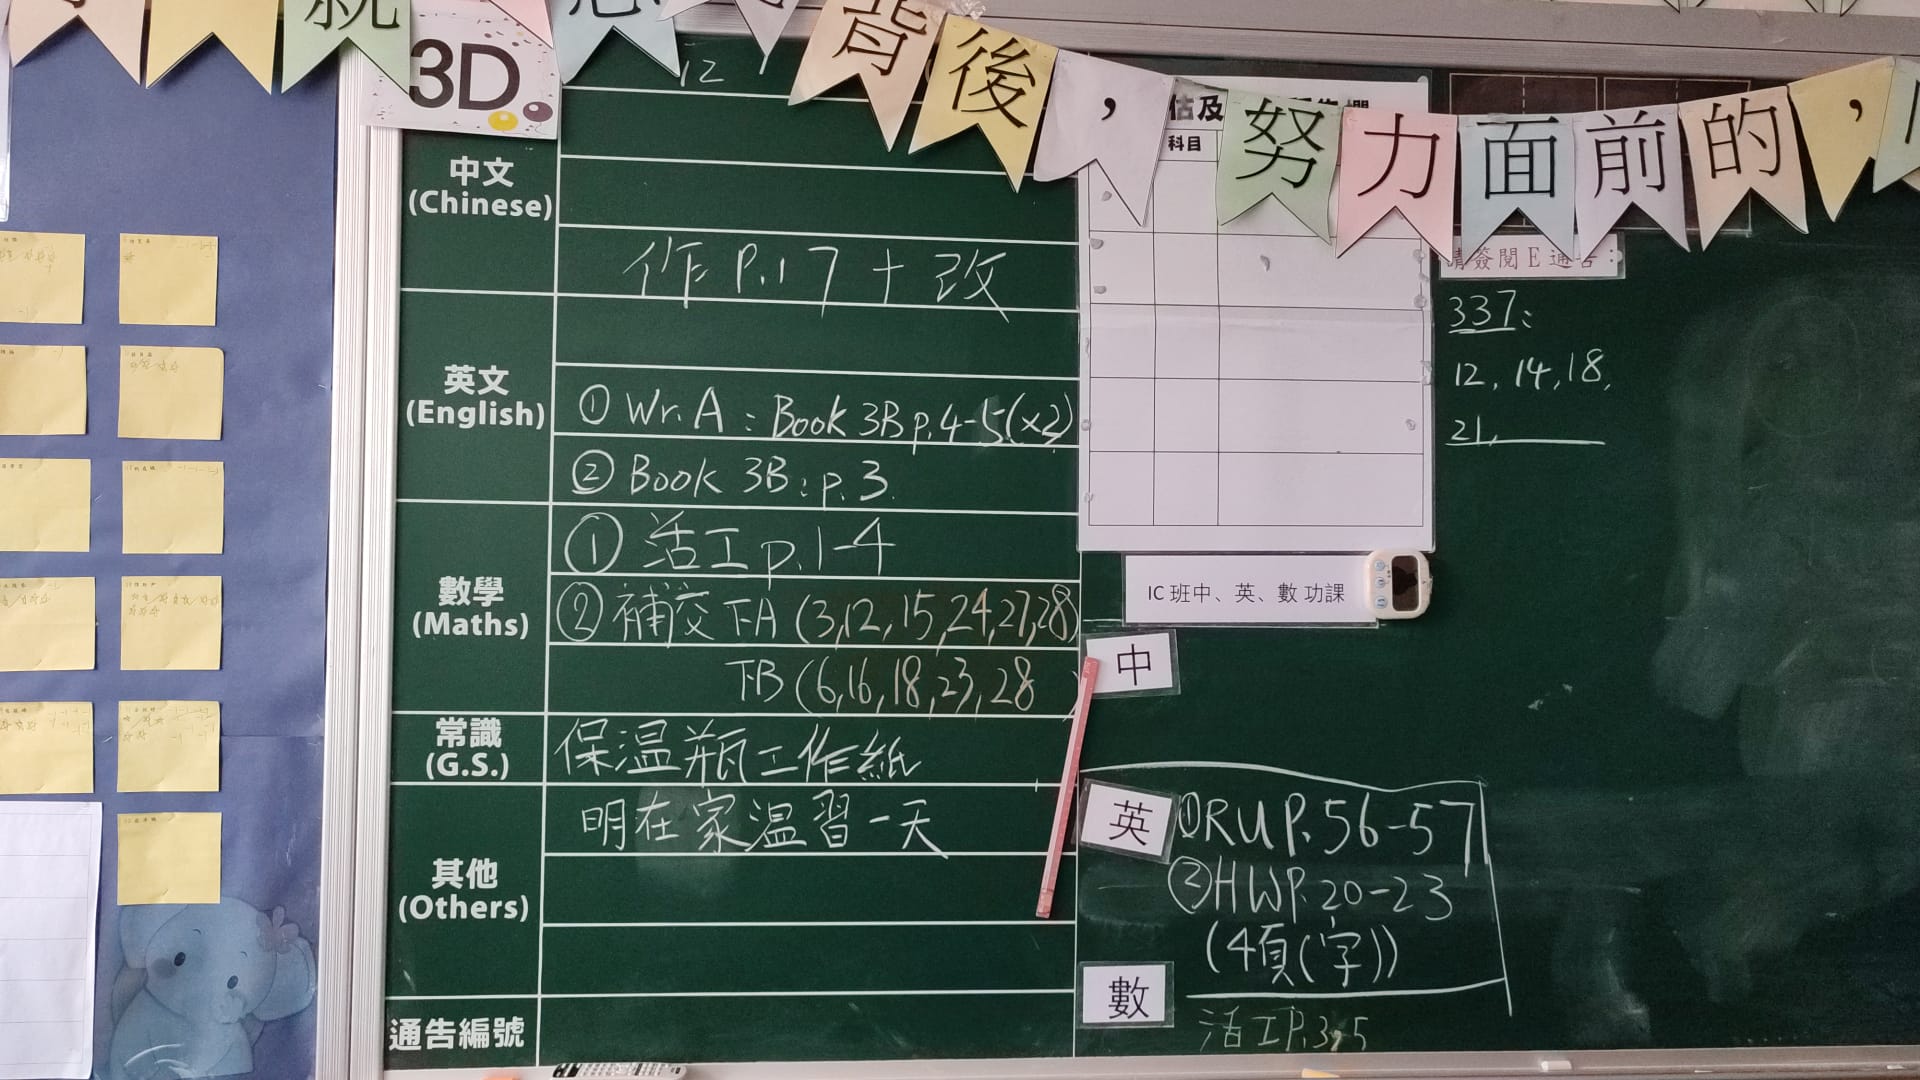 就
背後，努力面前的，
3D
12
中文
(Chinese)
作 P.17 + 改
英文
(English)
① Wr. A : Book 3B p.4-5 (x2)
② Book 3B : p.3.
數學
(Maths)
① 活工 p.1-4
② 補交 下A (3,12,15,24,27,28)
下B (6,16,18,23,28
常識
(G.S.)
保温瓶工作紙
其他
(Others)
明在家温習一天
通告編號
估及
科目
請簽閱E通告：
337:
12, 14, 18,
21,
IC 班中、英、數 功課
中
英
① RU P.56-57
② HW P.20-23
(4頁(字))
數
活工 P.3,5